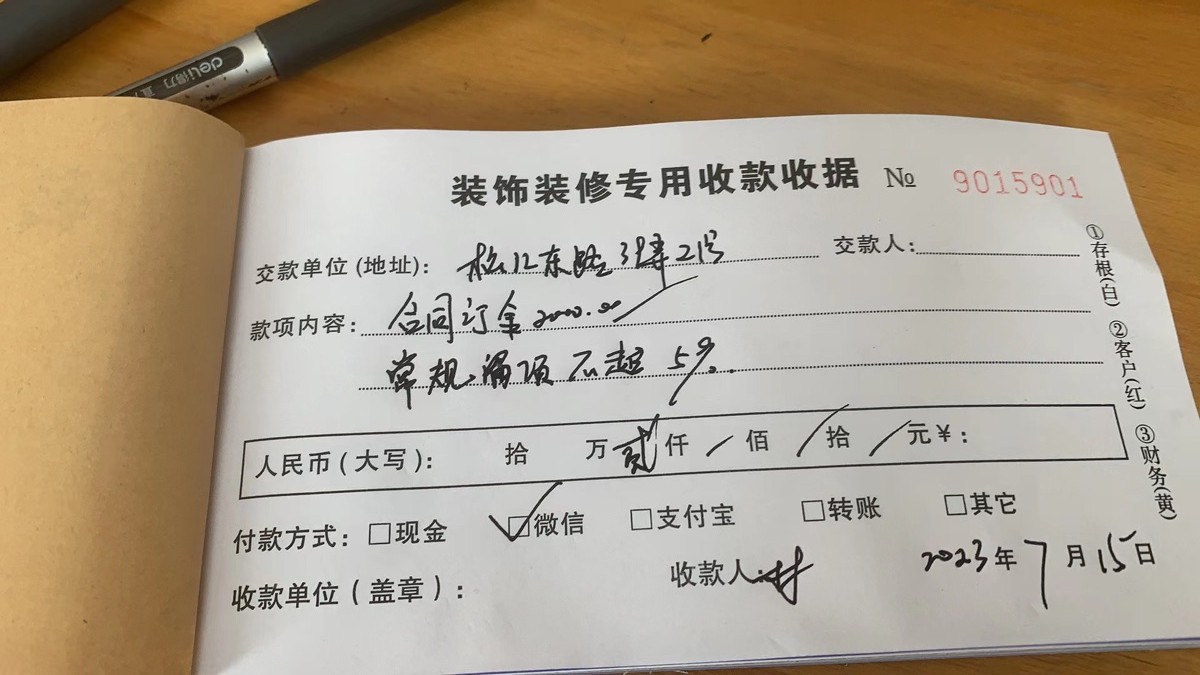 deli得力
装饰装修专用收款收据 № 9015901
交款单位(地址): 松江东路3弄21号 交款人:
款项内容: 合同订金2000.00
常规漏项不超5%.
人民币(大写): 拾 万 贰仟 / 佰 / 拾 / 元¥:
付款方式: □现金 ☑微信 □支付宝 □转账 □其它
收款单位(盖章): 收款人: 2023年7月15日
①存根(白) ②客户(红) ③财务(黄)